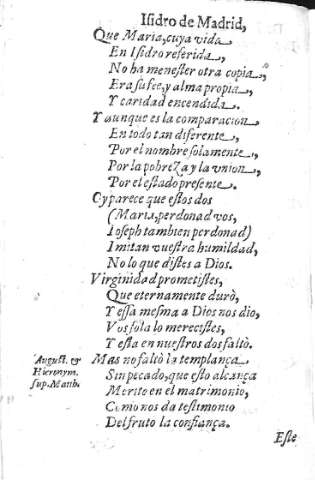 Isidro de Madrid,
Que Maria, cuya vida
En Isidro referida,
No ha menester otra copia,
Era su fee, y alma propia,
Y caridad encendida.
Y aunque es la comparacion
En todo tan diferente,
Por el nombre solamente,
Por la pobreza y la vnion,
Por el estado presente.
Oy parece que estos dos
(Maria, perdonad vos,
Ioseph tambien perdonad)
Imitan vuestra humildad,
No lo que distes a Dios.
Virginidad prometistes,
Que eternamente durò,
Y essa mesma a Dios nos dio,
Vos sola lo merecistes,
Y esta en nuestros dos faltò.
August. &
Hieronym.
sup. Matth.
Mas no faltò la templança
Sin pecado, que esto alcança
Merito en el matrimonio,
Como nos da testimonio
Del fruto la confiança.
Este